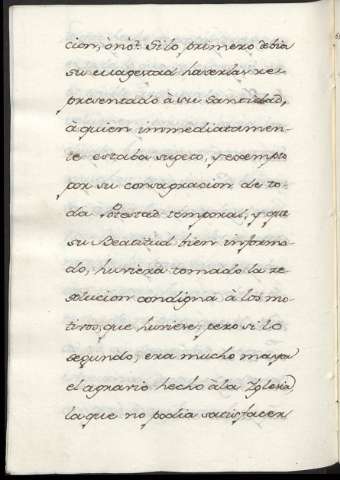 cion, ò no? Si lo primero debia
su Magestad haverlas re-
presentado à su Santidad,
à quien immediatamen-
te estaba sugeto, y exempto
por su consagracion de to-
da Potestad temporal, y que
su Beatitud bien informa-
do, huviera tomado la re-
solucion condigna à los mo-
tivos, que huviere; pero si lo
segundo, era mucho mayor
el agravio hecho à la Yglesia,
la que no podia satisfacer